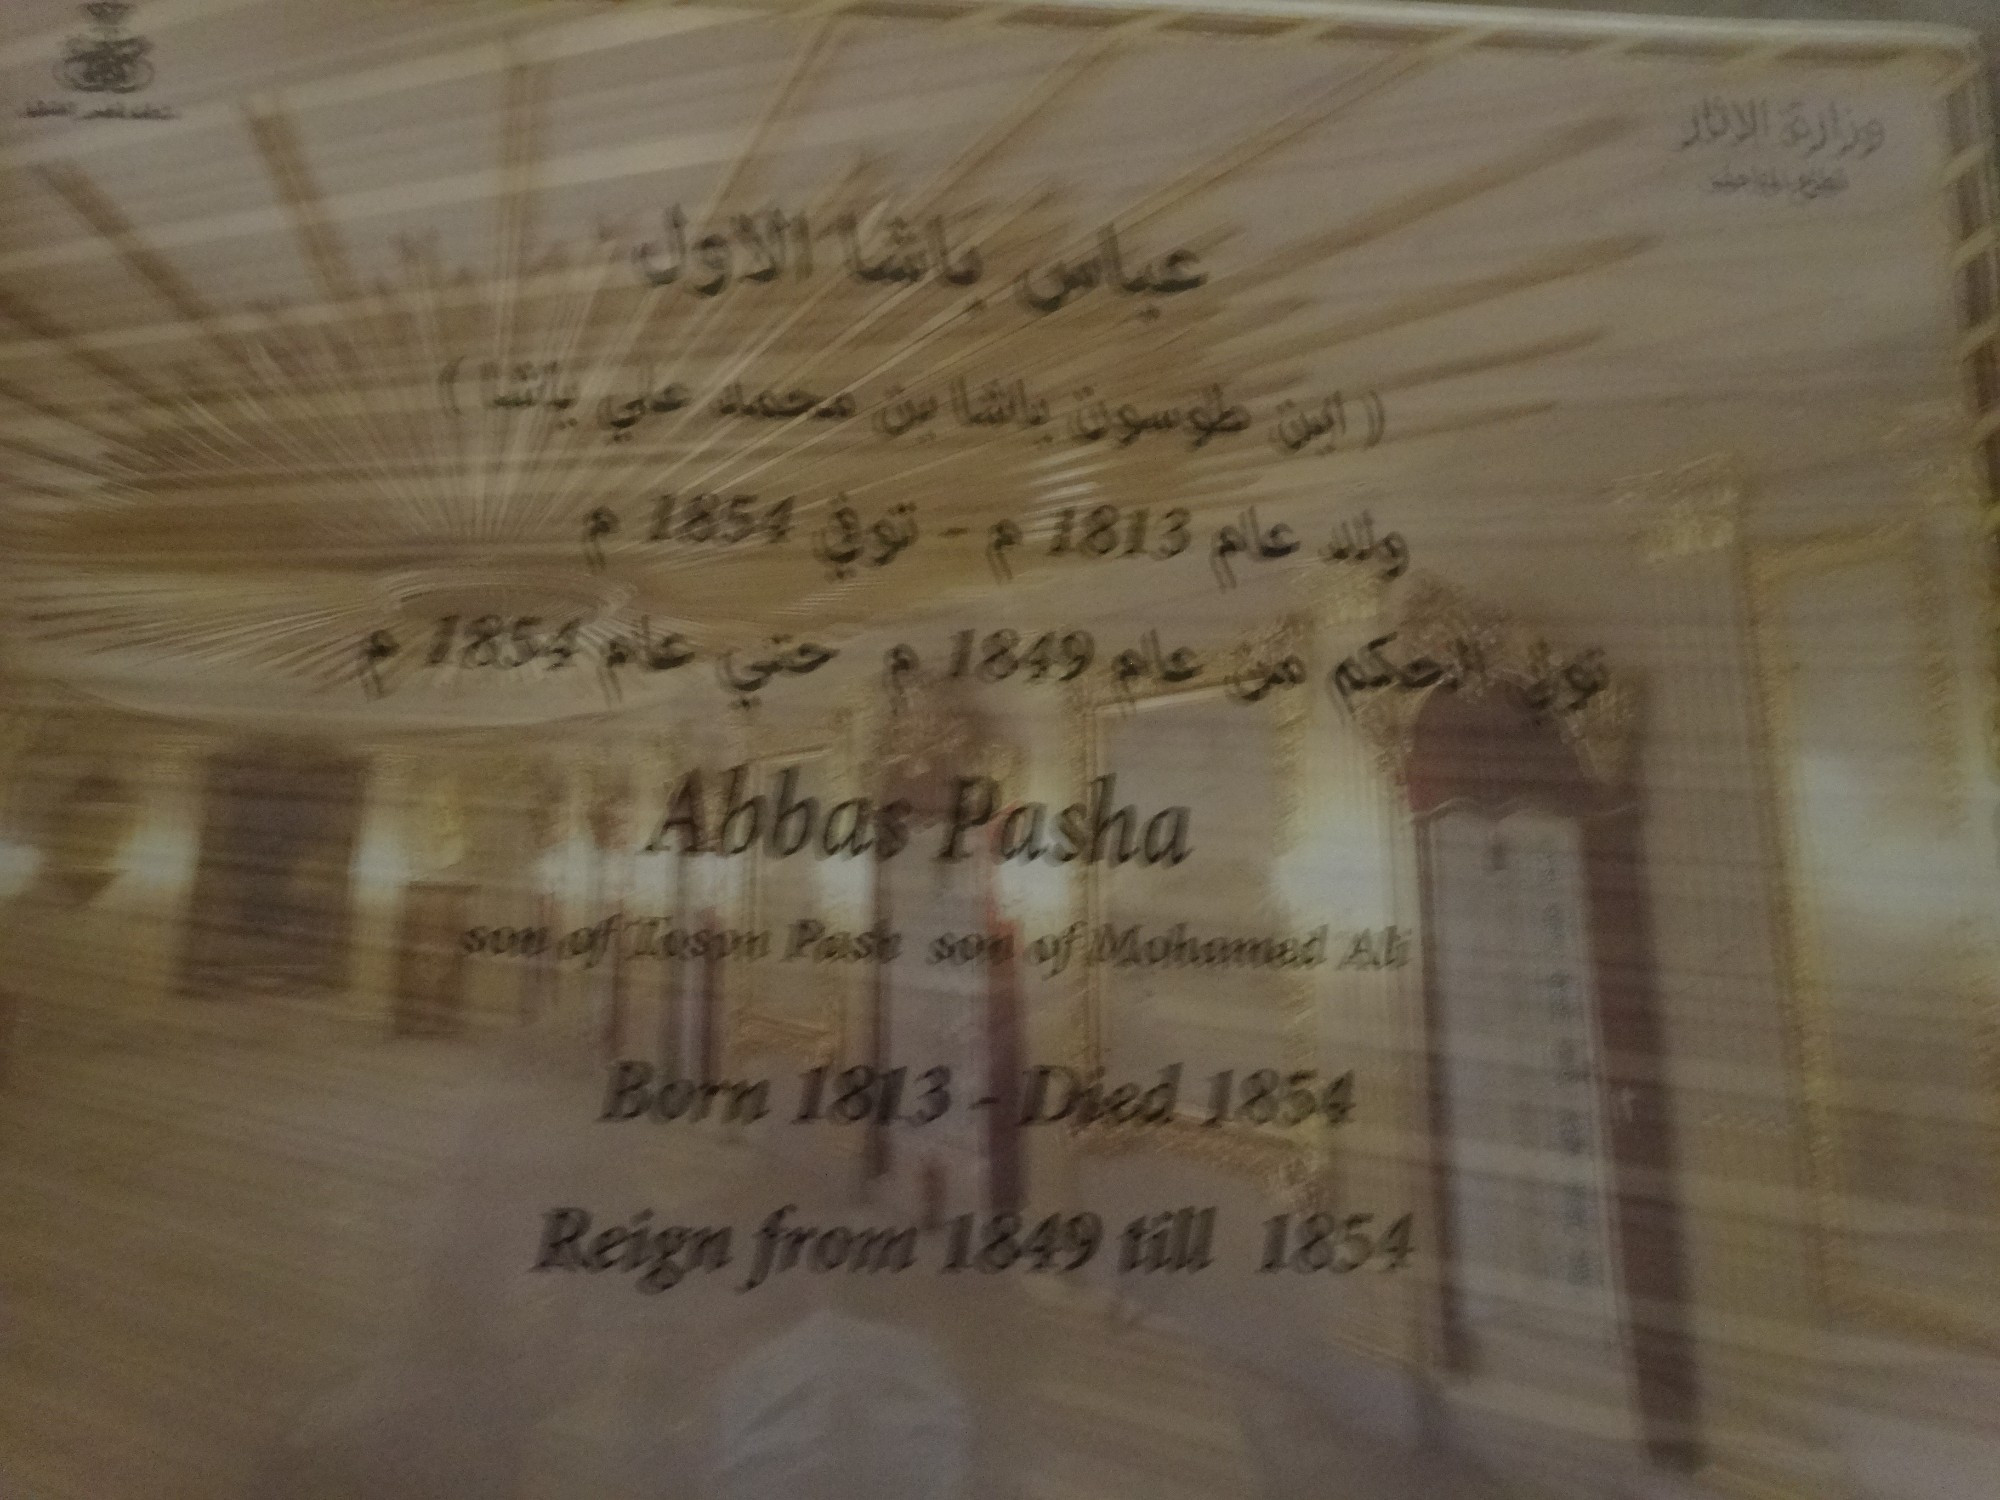 وزارة الاثار
قطاع المتاحف
عباس باشا الاول
( ابن طوسون باشا بن محمد علي باشا )
ولد عام 1813 م - توفي 1854 م
تولي الحكم من عام 1849 م حتي عام 1854 م
Abbas Pasha
son of Toson Pash son of Mohamed Ali
Born 1813 - Died 1854
Reign from 1849 till 1854